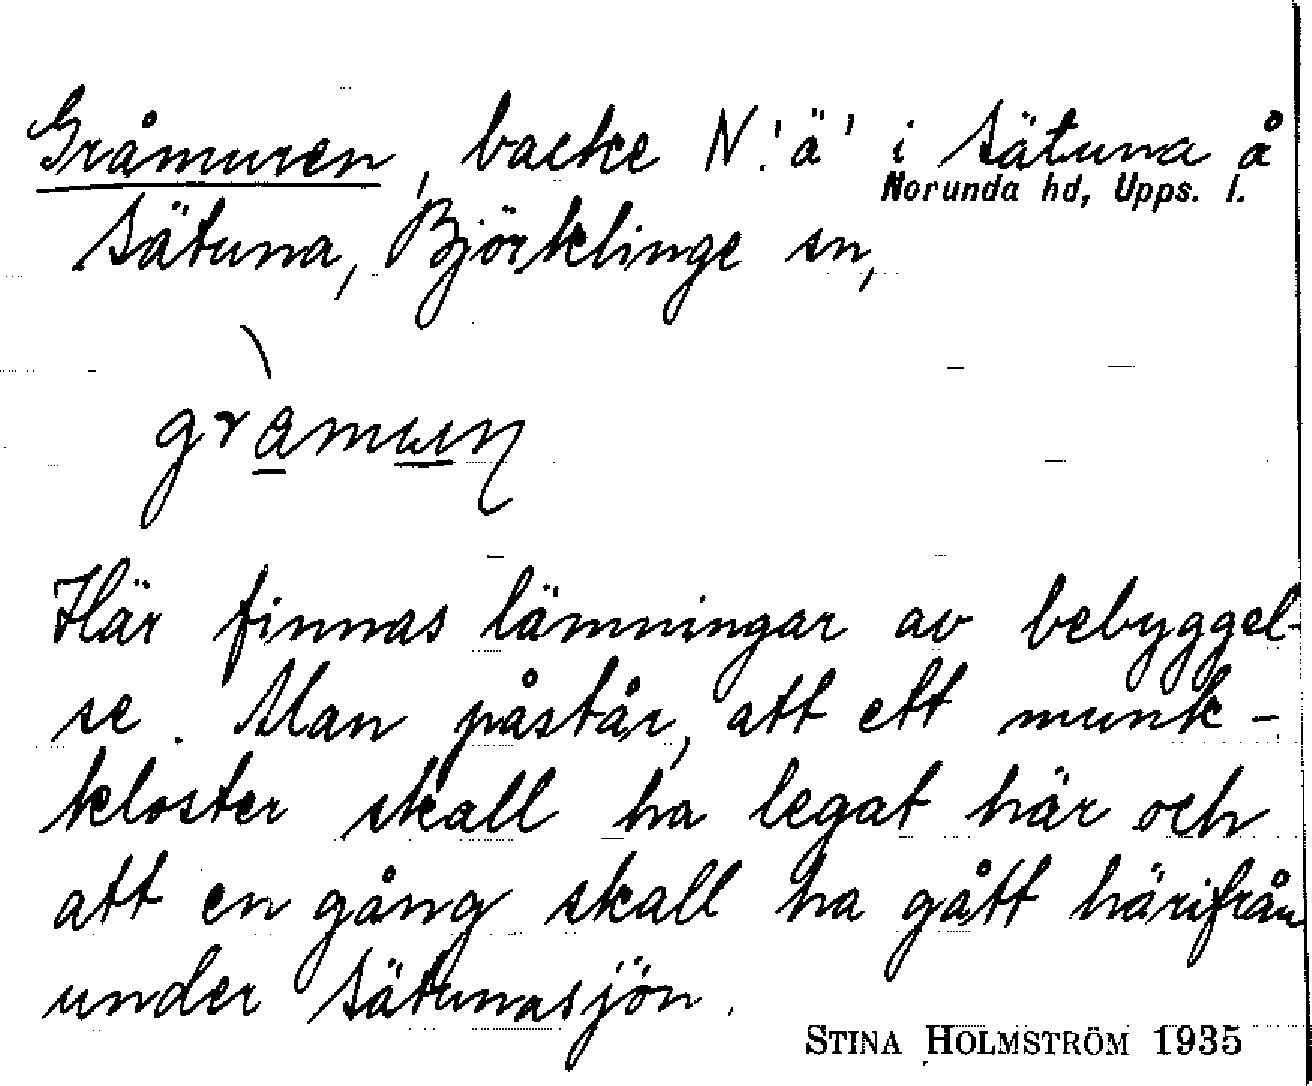 Gråmuren, backe N. 'ä' i Sätuna å
Norunda hd, Upps. l.
Sätuna, Björklinge sn,
Här finnas lämningar av bebyggel-
se. Man påstår, att ett munk-
kloster skall ha legat här och
att en gång skall ha gått härifrån
under Sätunasjön.
STINA HOLMSTRÖM 1935